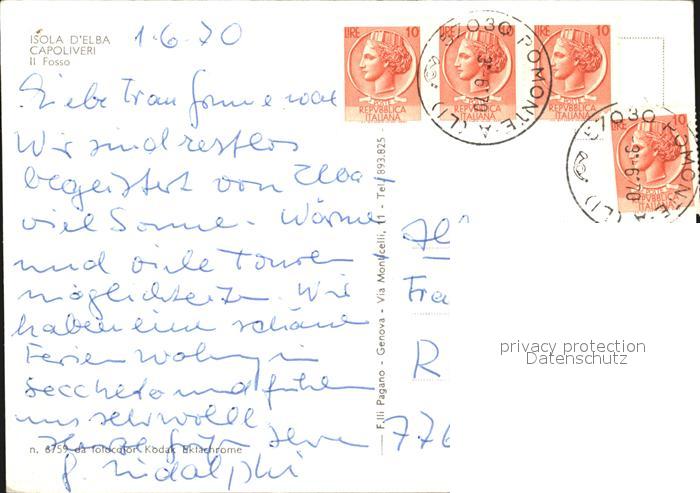 ISOLA D'ELBA
CAPOLIVERI
Il Fosso
1.6.70
Liebe Frau
Wir sind restlos
begeistert von Elba -
viel Sonne - Wärme
und viele Touren -
möglichkeiten. Wir
haben eine schöne
Ferienwohnung in
Seccheto und fühlen
uns sehr wohl.
n. 6759 da foldcolor Kodak Ektachrome
F.lli Pagano - Genova - Via Monticelli, 11 - Tel. 893.825
LIRE 10
POSTE
REPVBBLICA
ITALIANA
LIRE 10
POSTE
REPVBBLICA
ITALIANA
LIRE 10
POSTE
REPVBBLICA
ITALIANA
LIRE 10
POSTE
REPVBBLICA
ITALIANA
57030 POMONTE-A (LI)
3-6-70
57030 POMONTE-A (LI)
3-6-70
Fra
R
776
privacy protection
Datenschutz